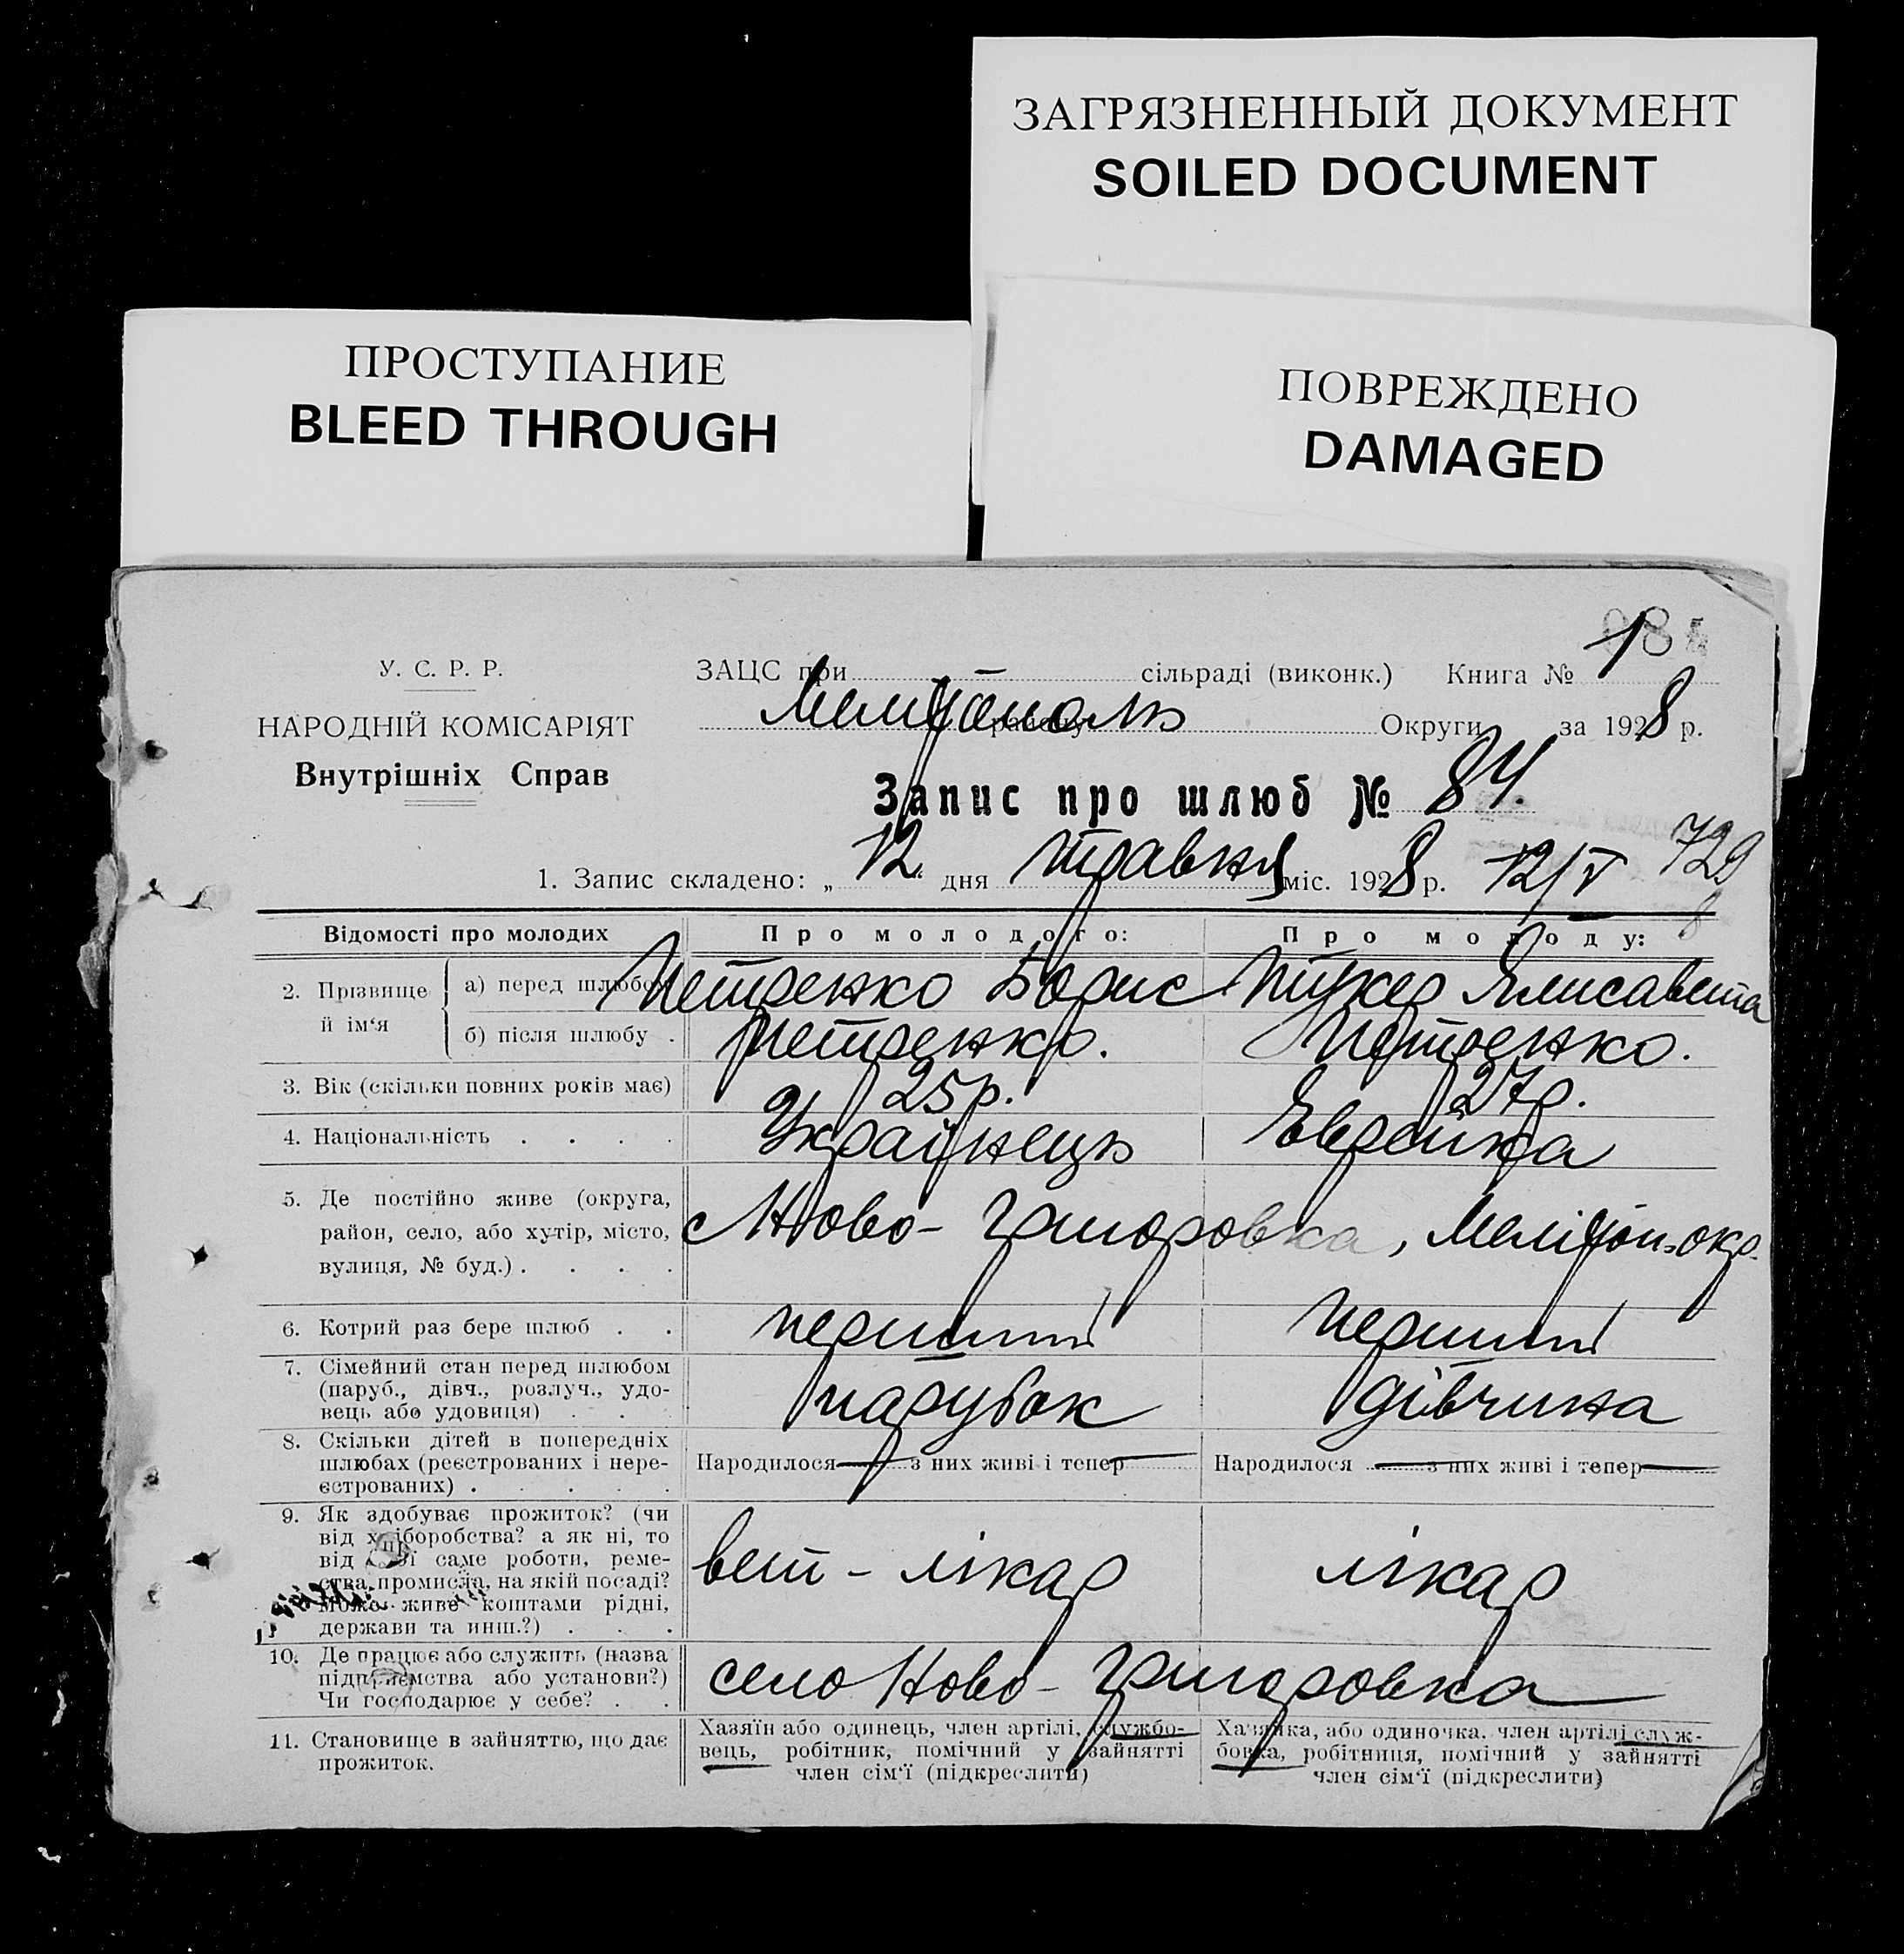 ЗАГРЯЗНЕННЫЙ ДОКУМЕНТ
SOILED DOCUMENT
ПРОСТУПАНИЕ
BLEED THROUGH
ПОВРЕЖДЕНО
DAMAGED
У. С. Р. Р.
НАРОДНІЙ КОМІСАРІЯТ
Внутрішніх Справ
ЗАЦС при сільраді (виконк.) Книга № 1
Мелітополь району Округи за 1928 р.
Запис про шлюб № 84.
1. Запис складено: „12“ дня травня міс. 1928 р. 12/V 729
8
Відомості про молодих
Про молодого:
Про молоду:
2. Прізвище й ім‘я
а) перед шлюбом
Петренко Борис
Елисавета
б) після шлюбу .
Петренко.
Петренко.
3. Вік (скільки повних років має)
25р.
27р.
4. Національність . . . .
Українець
Еврейка
5. Де постійно живе (округа,
район, село, або хутір, місто,
вулиця, № буд.) . . . .
с Ново-Григоровка, Мелітоп. окр.
6. Котрий раз бере шлюб . .
перший
перший
7. Сімейний стан перед шлюбом
(паруб., дівч., розлуч., удо-
вець або удовиця) . . .
парубок
дівчина
8. Скільки дітей в попередніх
шлюбах (реєстрованих і нере-
єстрованих) . . . . .
Народилося — з них живі і тепер —
Народилося — з них живі і тепер —
9. Як здобуває прожиток? (чи
від хліборобства? а як ні, то
від якої саме роботи, реме-
ства, промисла, на якій посаді?
Може живе коштами рідні,
держави та инш.?) . . .
вет - лікар
лікар
10. Де працює або служить (назва
підприємства або установи?)
Чи господарює у себе? . .
село Ново-Григоровка
11. Становище в зайняттю, що дає
прожиток.
Хазяїн або одинець, член артілі, службо-
вець, робітник, помічний у зайнятті
член сім‘ї (підкреслити)
Хазяйка, або одиночка. член артілі служ-
бовка, робітниця, помічний у зайнятті
член сім‘ї (підкреслити)